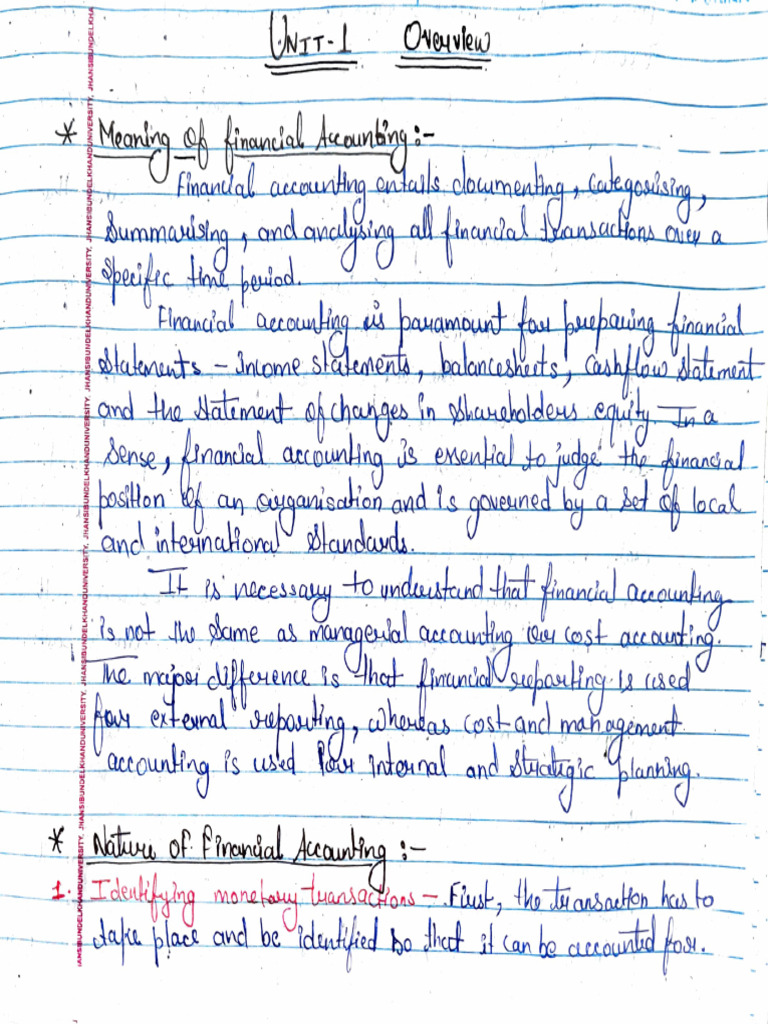 UNIT-1 Overview
* Meaning of financial Accounting:-
Financial accounting entails documenting, categorising,
summarising, and analysing all financial transactions over a
specific time period.
Financial accounting is paramount for preparing financial
statements - income statements, balancesheets, cashflow statement
and the statement of changes in shareholders equity. In a
sense, financial accounting is essential to judge the financial
position of an organisation and is governed by a set of local
and international standards.
It is necessary to understand that financial accounting
is not the same as managerial accounting or cost accounting.
The major difference is that financial reporting is used
for external reporting, whereas cost and management
accounting is used for internal and strategic planning.
* Nature of Financial Accounting :-
1. Identifying monetary transactions - First, the transaction has to
take place and be identified so that it can be accounted for.
JHANSIBUNDELKHANDUNIVERSITY, JHANSIBUNDELKHANDUNIVERSITY, JHANSIBUNDELKHANDUNIVERSITY, JHANSIBUNDELKHANDUNIVERSITY, JHANSIBUNDELKHA